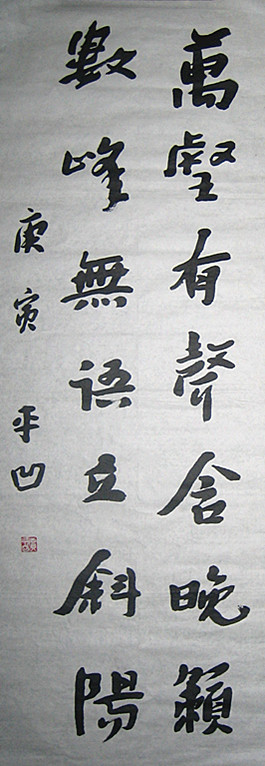 萬壑有聲含晚籟
數峰無語立斜陽
庚寅 平凹